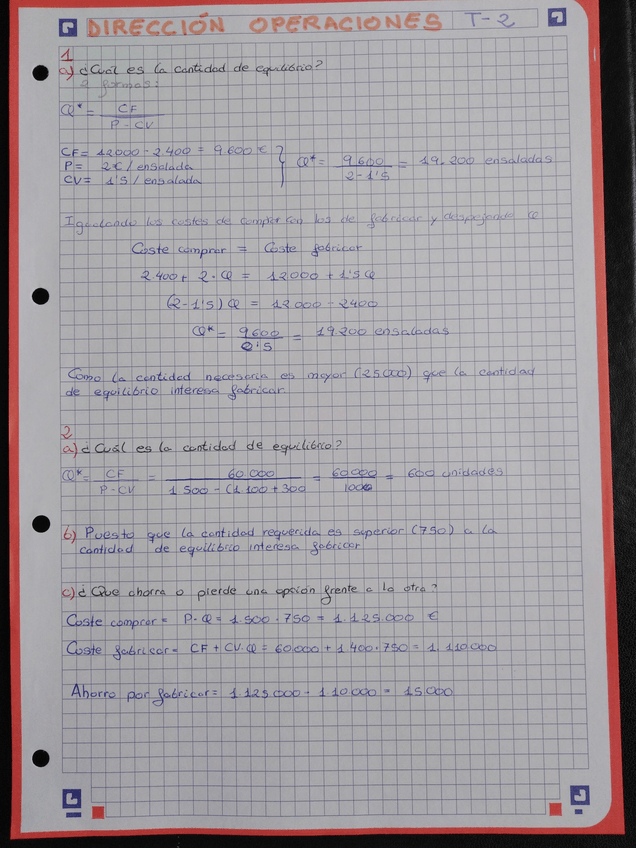 DIRECCIÓN OPERACIONES T-2
1
a) ¿Cuál es la cantidad de equilibrio?
2 formas:
Q* = CF / P - CV
CF = 12000 - 2400 = 9.600 €
P = 2€ / ensalada
CV = 1'5 / ensalada
Q* = 9.600 / 2 - 1'5 = 19.200 ensaladas
Igualando los costes de comprar con los de fabricar y despejando Q
Coste comprar = Coste fabricar
2.400 + 2 · Q = 12000 + 1'5 Q
(2 - 1'5) Q = 12000 - 2400
Q* = 9600 / 0'5 = 19200 ensaladas
Como la cantidad necesaria es mayor (25000) que la cantidad
de equilibrio interesa fabricar
2
a) ¿Cuál es la cantidad de equilibrio?
Q* = CF / P - CV = 60.000 / 1500 - (1100 + 300 = 60000 / 100 = 600 unidades
b) Puesto que la cantidad requerida es superior (750) a la
cantidad de equilibrio interesa fabricar
c) ¿Que ahorra o pierde una opsión frente a la otra?
Coste comprar = P · Q = 1.500 · 750 = 1.125.000 €
Coste fabricar = CF + CV · Q = 60.000 + 1400 · 750 = 1.110000
Ahorro por fabricar = 1.125000 - 1110.000 = 15000